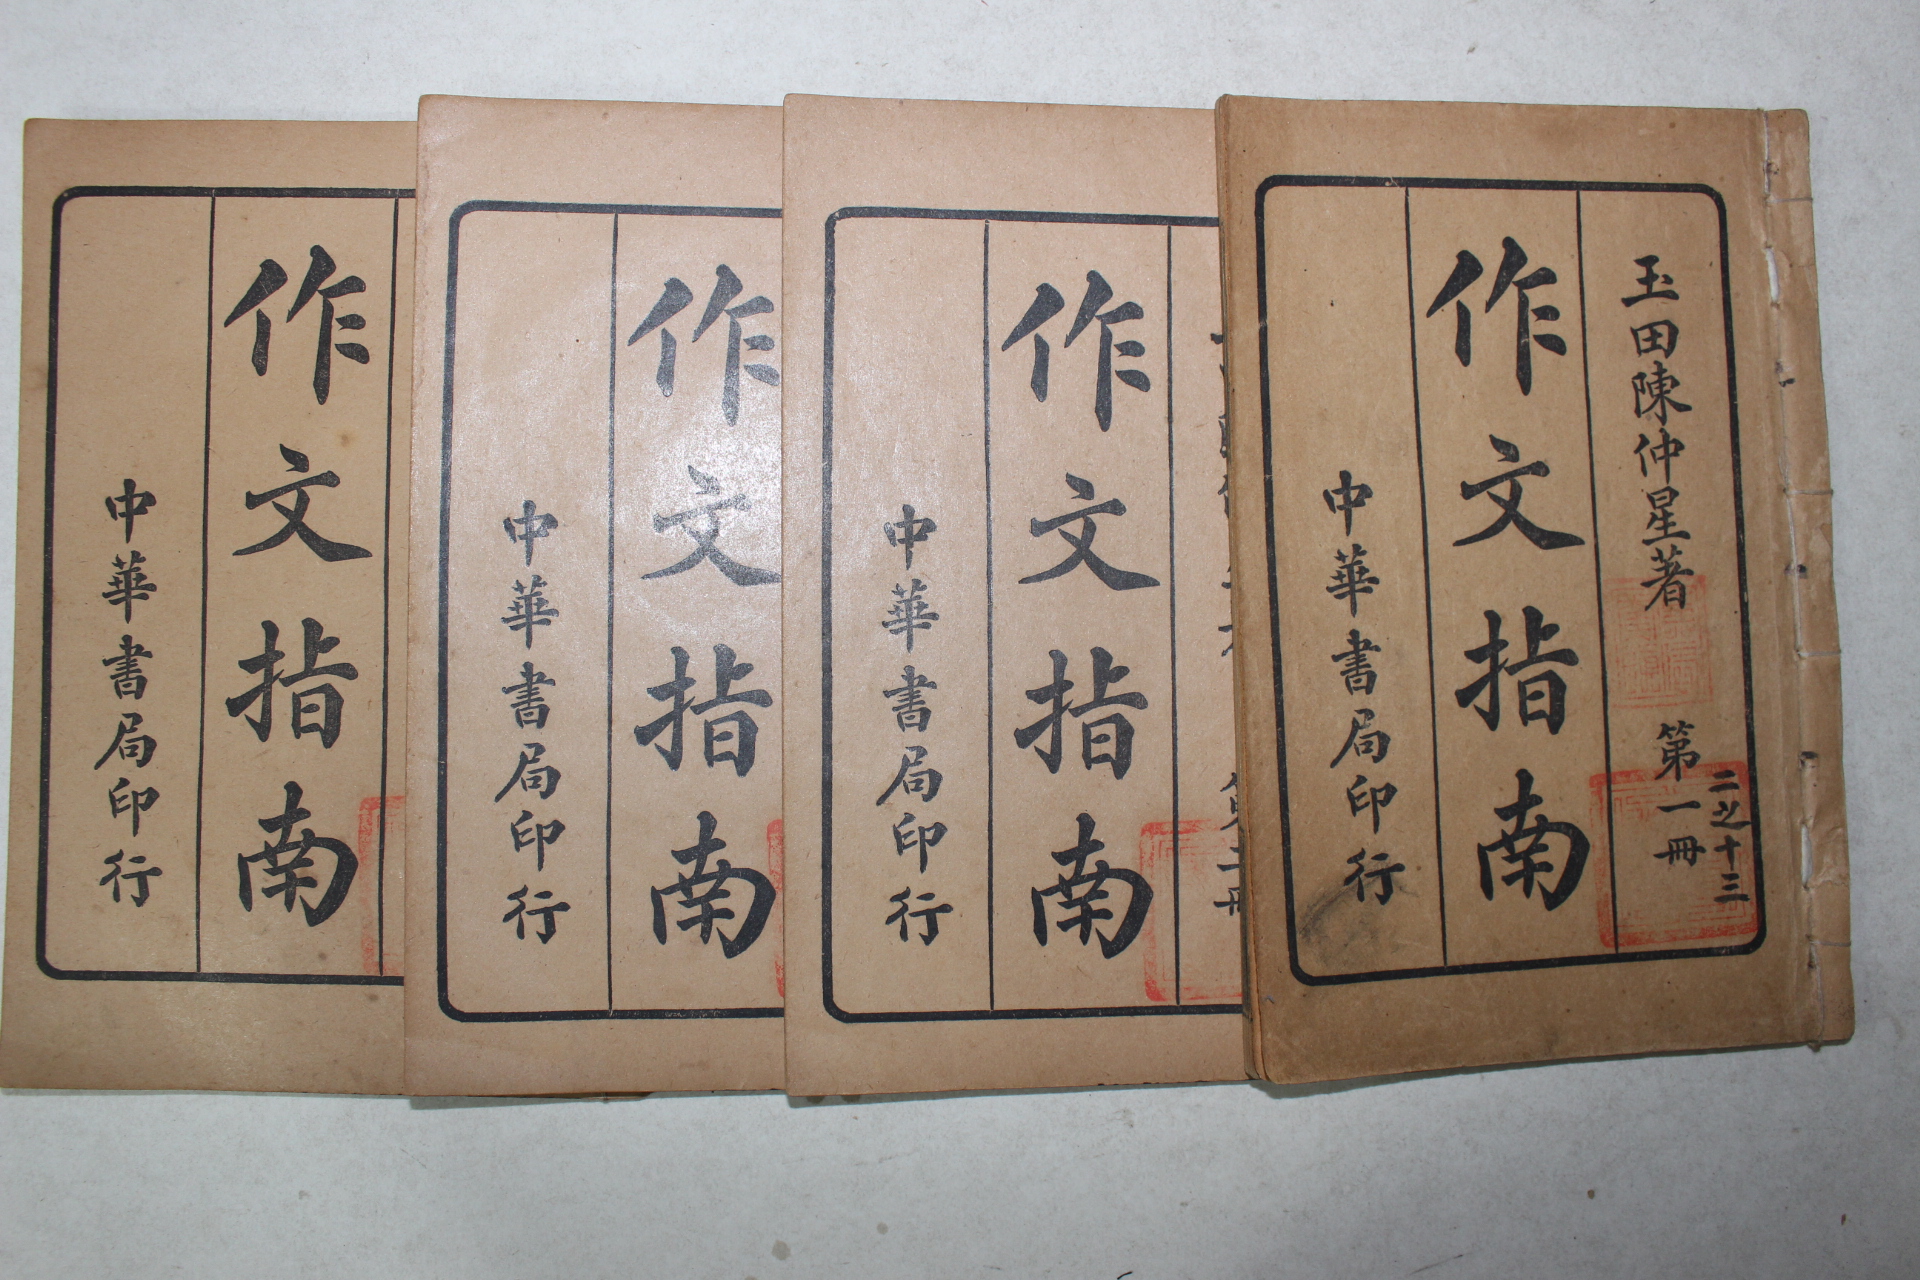 玉田陳仲星著
第一冊
二之十三
作文指南
中華書局印行
作文指南
中華書局印行
作文指南
中華書局印行
作文指南
中華書局印行